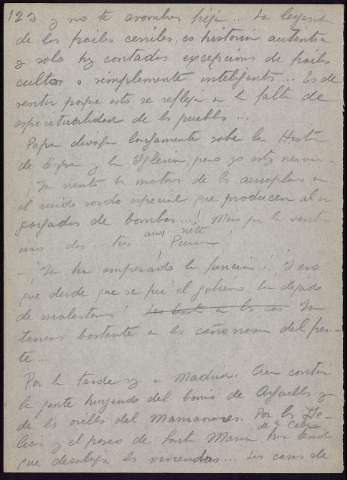 122 y no te asombres hija... La leyenda
de los frailes cerriles es historia autentica
y solo hay contadas excepciones de frailes
cultos o simplemente inteligentes... Es de
sentir porque esto se refleja en la falta de
espiritualidad de los pueblos...
Papa divaga largamente sobre la Historia
de España y la Iglesia, pero yo estoy nerviosa.
Ya siento los motores de los aeroplanos
el ruido sordo especial que producen al ir
cargados de bombas...! Miro por la ventana
uno dos tres siete
- ¡Ya ha empezado la función! Y eso
que desde que se fue el gobierno han dejado
de molestarnos! Ya
tenemos bastante con los cañonazos del frente...
Por la tarde voy a Madrid. Veo
la gente huyendo del barrio de Argüelles y
de las orillas del Manzanares. Por la
y el paseo de Santa Maria
que desaloja las viviendas... Las casas de